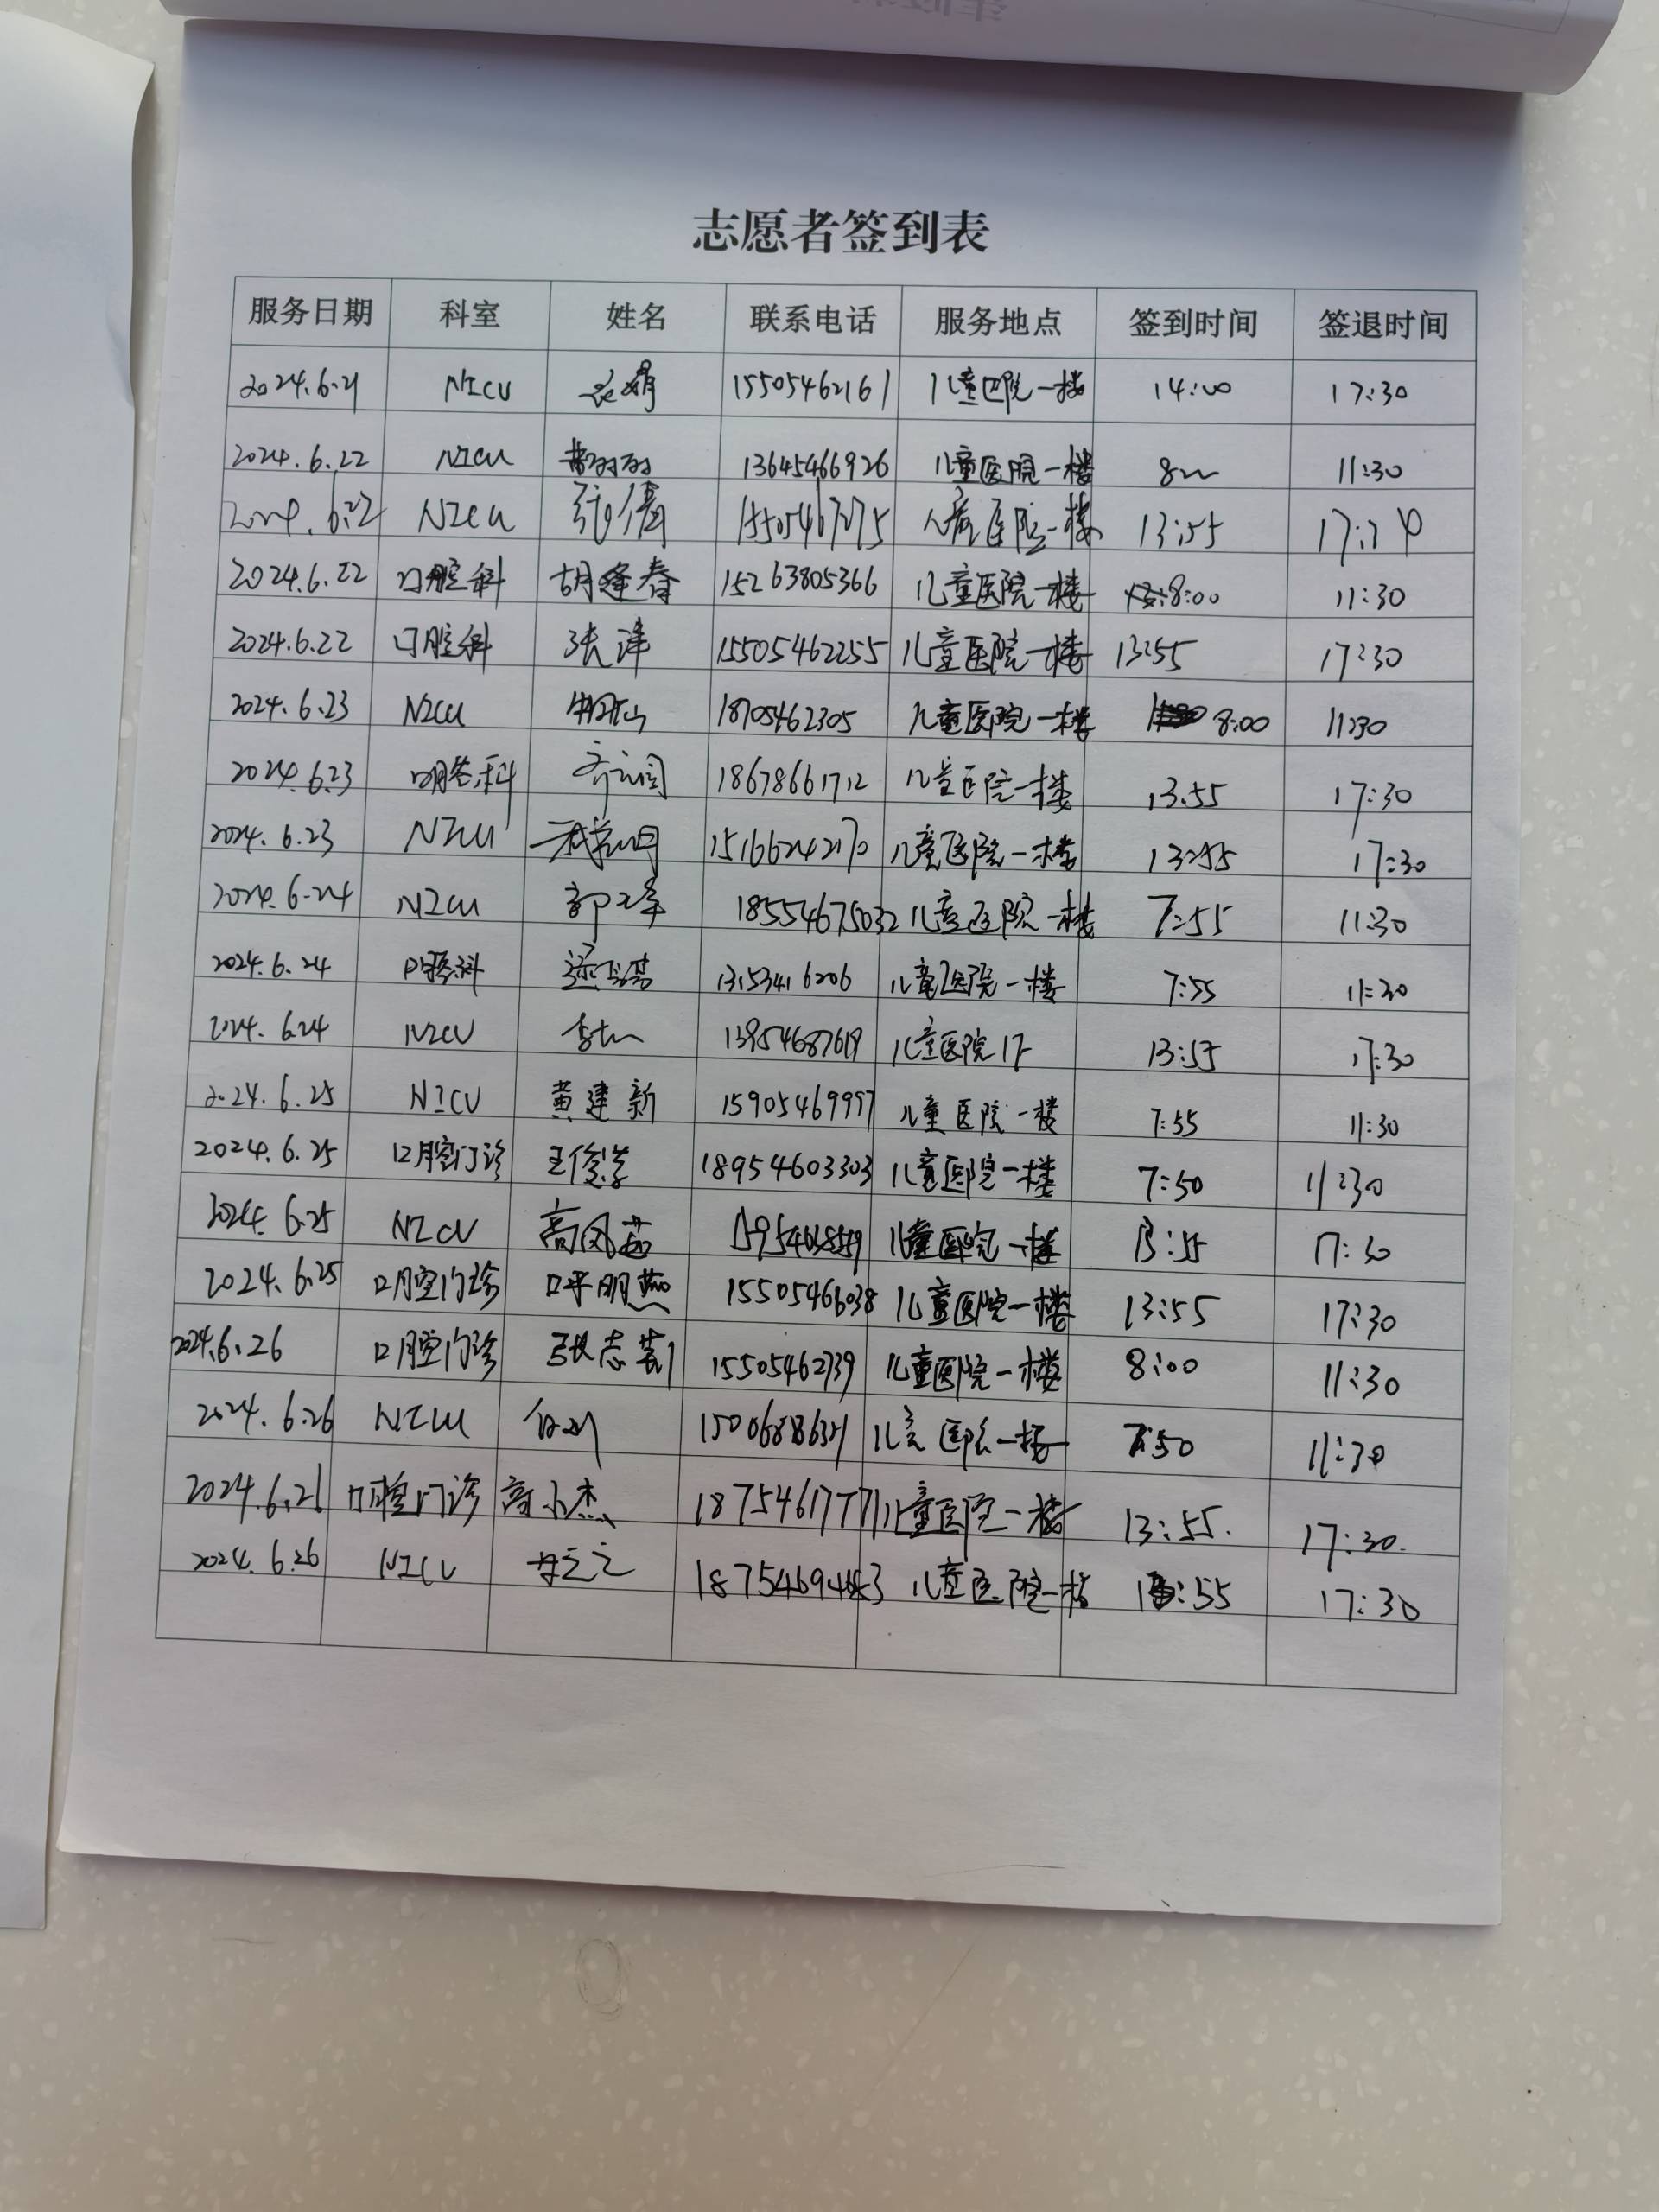 志愿者签到表
服务日期 科室 姓名 联系电话 服务地点 签到时间 签退时间
2024.6.21 NICU 15505462161 儿童医院一楼 14:00 17:30
2024.6.22 NICU 13645466926 儿童医院一楼 8 11:30
2024.6.22 NICU 张倩 儿童医院一楼 13:55
2024.6.22 口腔科 胡逢春 15263805366 儿童医院一楼 8:00 11:30
2024.6.22 口腔科 张洋 15505462255 儿童医院一楼 13:55 17:30
2024.6.23 NICU 18705462305 儿童医院一楼 8:00 11:30
2024.6.23 口腔科 18678661712 儿童医院一楼 13.55 17:30
2024.6.23 NICU 儿童医院一楼 13:55 17:30
2024.6.24 NICU 18554675032 儿童医院一楼 7:55 11:30
2024.6.24 口腔科 13153416206 儿童医院一楼 7:55 11:30
2024.6.24 NICU 13954687619 儿童医院1F 13:55 17:30
2024.6.25 NICU 黄建新 15905469997 儿童医院一楼 7:55 11:30
2024.6.25 口腔门诊 18954603303 儿童医院一楼 7:50 11:30
2024.6.25 NICU 高凤茹 儿童医院一楼 13:55 17:30
2024.6.25 口腔门诊 呼明燕 15505466038 儿童医院一楼 13:55 17:30
2024.6.26 口腔门诊 15505462739 儿童医院一楼 8:00 11:30
2024.6.26 NICU 儿童医院一楼 7:50 11:30
2024.6.26 口腔门诊 18754617771 儿童医院一楼 13:55. 17:30.
2024.6.26 NICU 儿童医院一楼 13:55 17:30